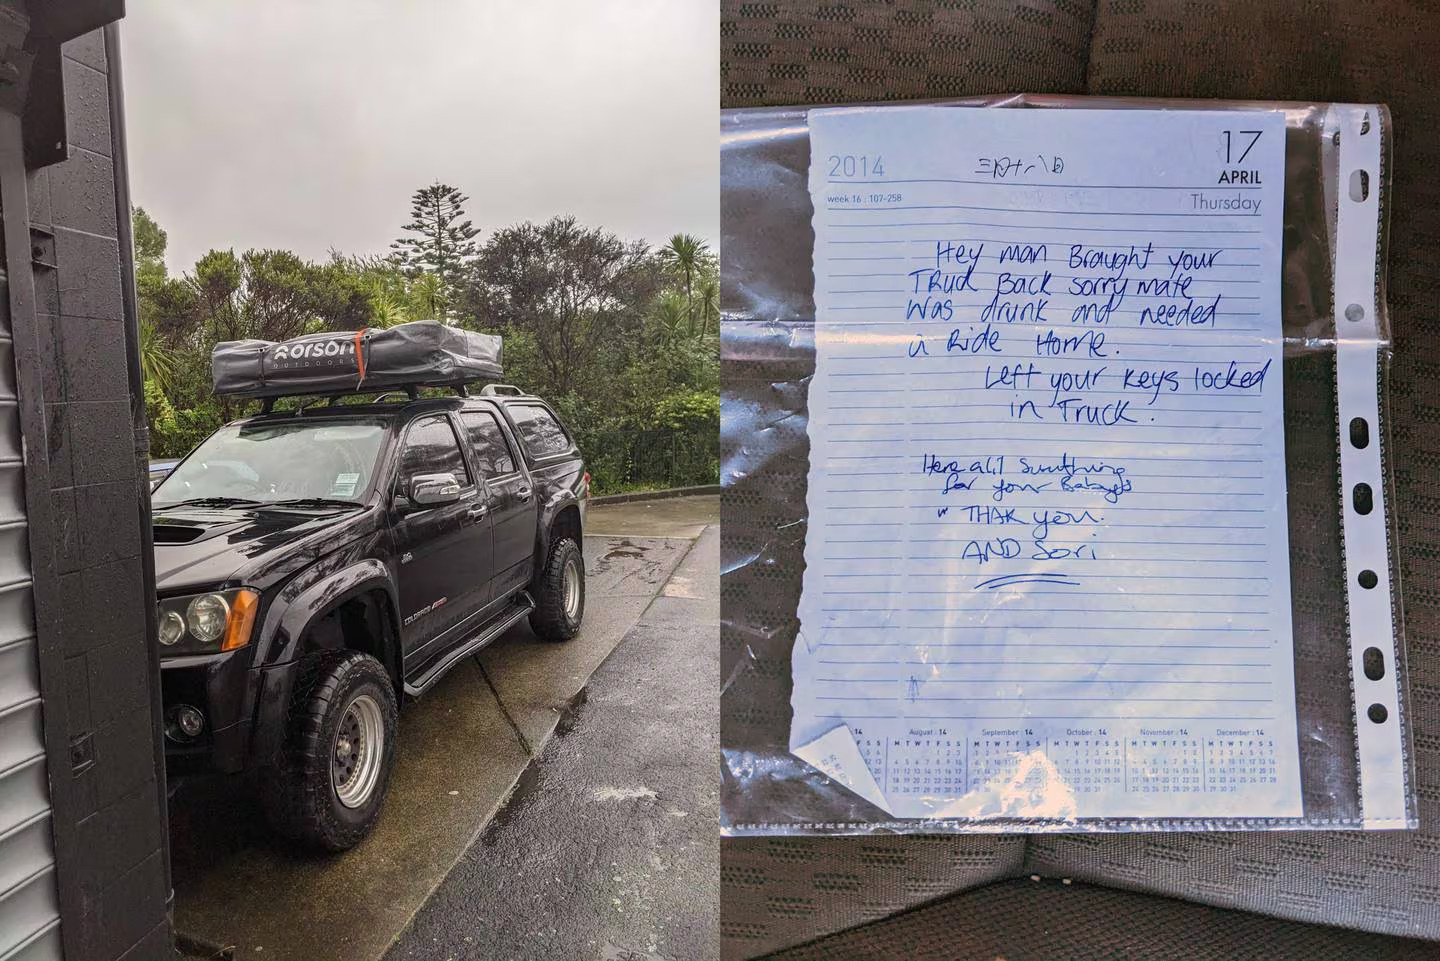 orson
OUTDOORS
COLORADO
2014
17
APRIL
week 16 : 107-258
Thursday
Hey man Brought your
Truck Back sorry mate
Was drunk and needed
a Ride Home.
Left your keys locked
in Truck.
Here a lil Sumthing
for your
" THAK you.
AND Sori
14
August : 14
September : 14
October : 14
November : 14
December : 14
M T W T F S S
M T W T F S S
M T W T F S S
M T W T F S S
M T W T F S S